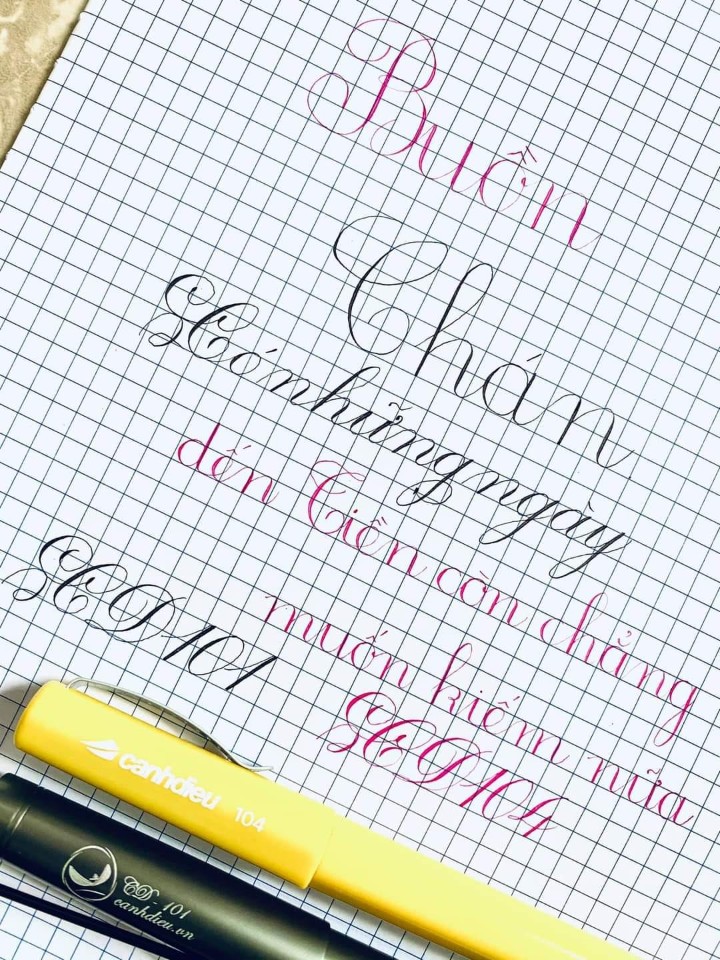 Buồn
Chán
Có những ngày
đến Tiền còn chẳng
muốn kiếm nữa
CD 101
CD 104
canhdieu 104
CD - 101
canhdieu.vn